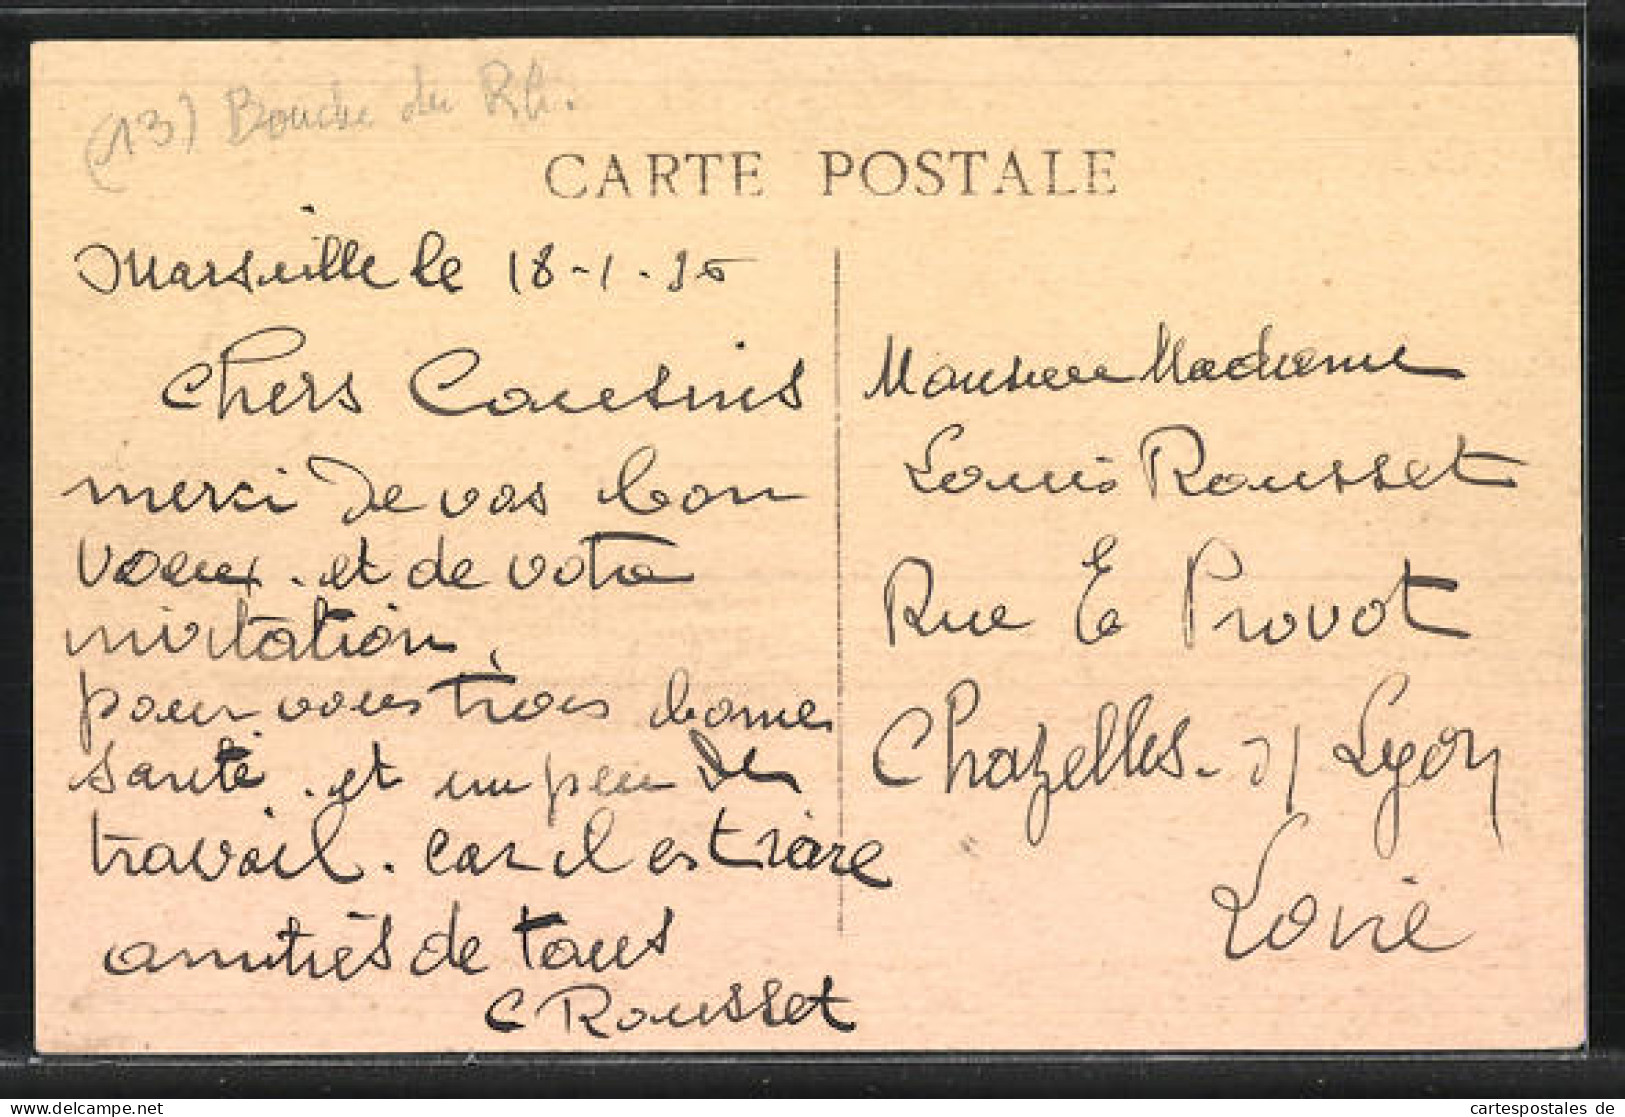 (13) Bouche du Rh.
CARTE POSTALE
Marseille le 18-1-35
Chers Cousins
merci de vos bon
voeux. et de votre
invitation,
pour vous trois bonne
santé. et un peu de
travail. car il est rare
amitiés de tous
C Rousset
Monsieur Madame
Louis Rousset
Rue E Provot
Chazelles-s/ Lyon
Loire
cartespostales de